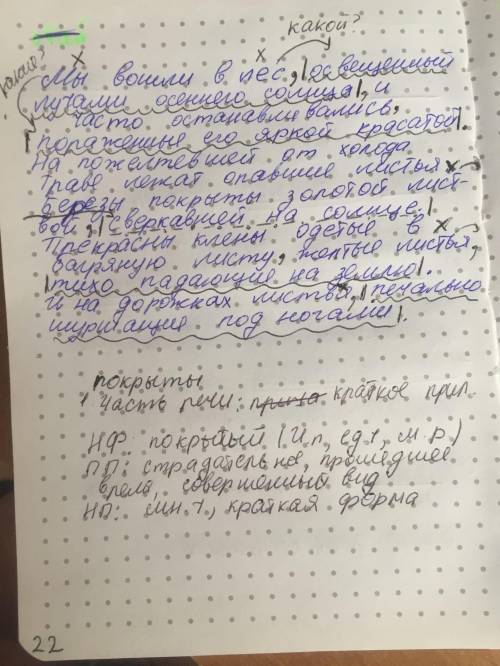 какой?
какие?
Мы вошли в лес, освещенный
лучами осеннего солнца, и
часто останавливались,
пораженные его яркой красатой.
На пожелтевшей от холода
траве лежат опавшие листья
березы покрыты золотой лист-
вой, сверкавшей на солнце,
Прекрасны клены одетые в
багряную листу, желтые листья,
тихо падающие на землю.
И на дорожках листья, печально
шуршащие под ногами.
покрыты
часть речи: краткое прил.
НФ: покрытый (И.п, ед.ч, м.р.)
ПП: страдательное, прошедшее
время, совершенный вид
НП: мн.ч., краткая форма
22